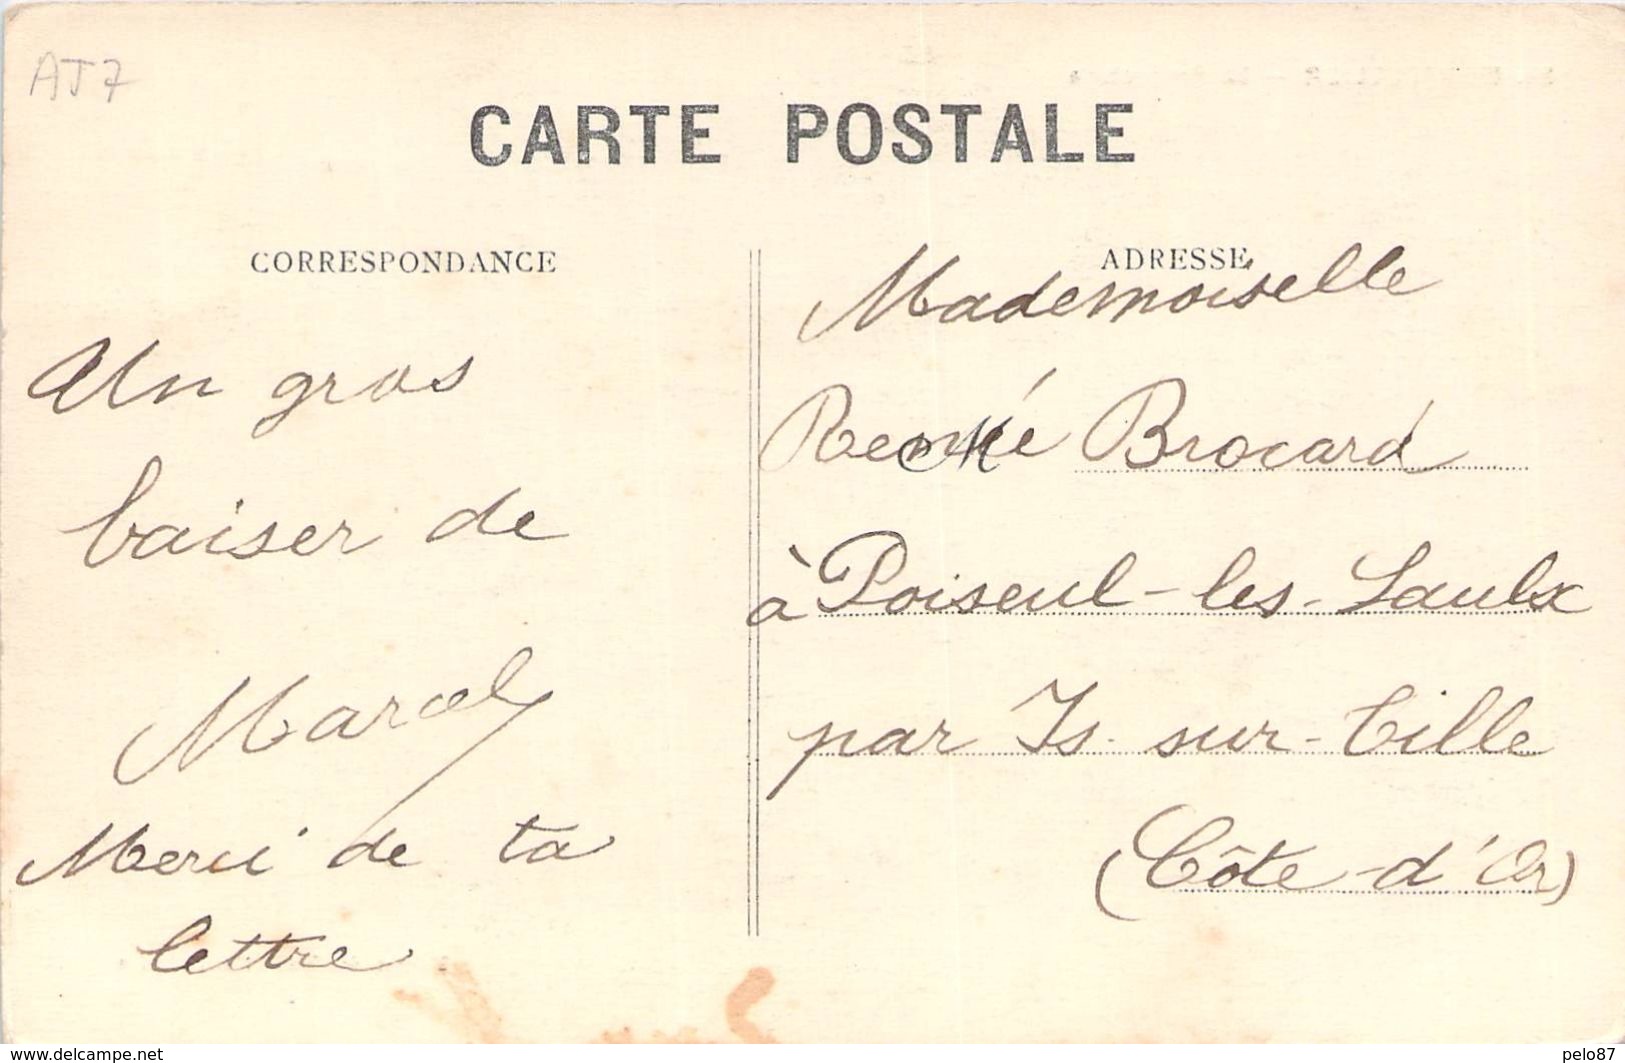 AJ7
CARTE POSTALE
CORRESPONDANCE
Un gros
baiser de
Marcel
Merci de ta
lettre
ADRESSE
Mademoiselle
Brocard
à Poiseul-les-Saulx
par Is-sur-Tille
(Côte-d'Or)
www.delcampe.net
pelo87